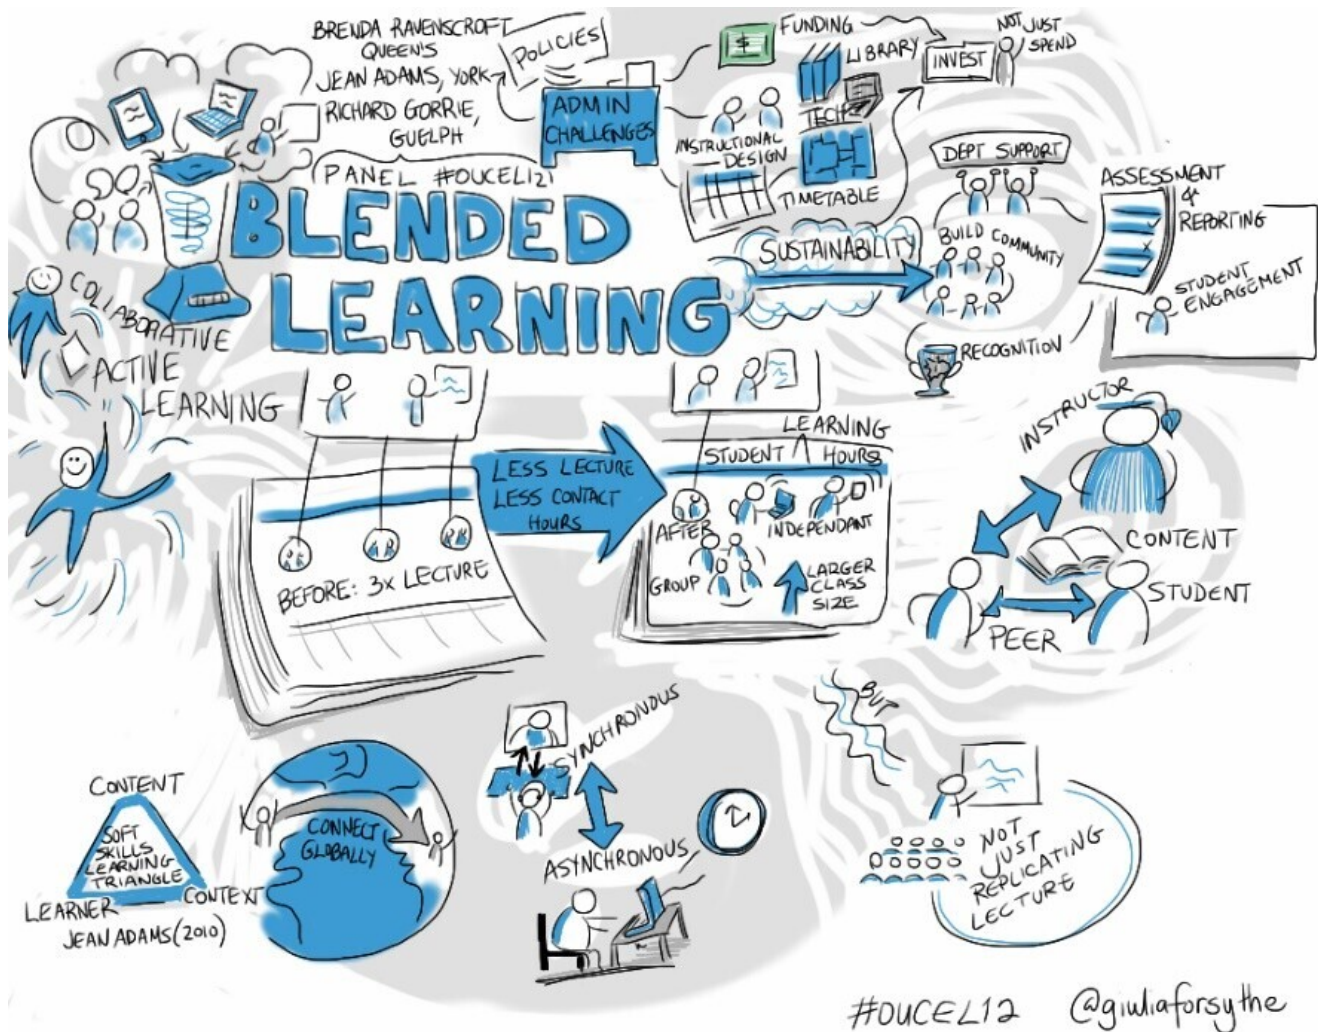 BRENDA RAVENSCROFT
QUEENS
JEAN ADAMS, YORK
RICHARD GORRIE,
GUELPH
(PANEL #OUCEL12)
BLENDED
LEARNING
POLICIES
ADMIN
CHALLENGES
$
FUNDING
LIBRARY
TECH
INSTRUCTIONAL
DESIGN
TIMETABLE
INVEST
NOT
JUST
SPEND
SUSTAINABILITY
DEPT SUPPORT
BUILD COMMUNITY
RECOGNITION
ASSESSMENT
&
REPORTING
STUDENT
ENGAGEMENT
COLLABORATIVE
ACTIVE
LEARNING
BEFORE: 3X LECTURE
LESS LECTURE
LESS CONTACT
HOURS
LEARNING
STUDENT HOURS
AFTER
INDEPENDANT
GROUP
LARGER
CLASS
SIZE
INSTRUCTOR
CONTENT
STUDENT
PEER
CONTENT
SOFT
SKILLS
LEARNING
TRIANGLE
LEARNER
CONTEXT
JEAN ADAMS (2010)
CONNECT
GLOBALLY
SYNCHRONOUS
ASYNCHRONOUS
BUT
NOT
JUST
REPLICATING
LECTURE
#OUCEL12 @giuliaforsythe